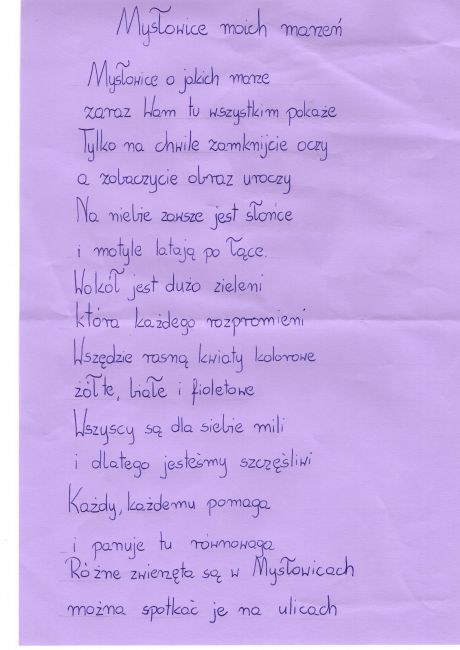 Mysłowice moich marzeń
Mysłowice o jakich marze
zaraz Wam tu wszystkim pokaże
Tylko na chwile zamknijcie oczy
a zobaczycie obraz uroczy
Na niebie zawsze jest słońce
i motyle latają po łące.
Wokół jest dużo zieleni
która każdego rozpromieni
Wszędzie rosną kwiaty kolorowe
żółte, białe i fioletowe
Wszyscy są dla siebie mili
i dlatego jesteśmy szczęśliwi
Każdy, każdemu pomaga
i panuje tu równowaga
Różne zwierzęta są w Mysłowicach
można spotkać je na ulicach